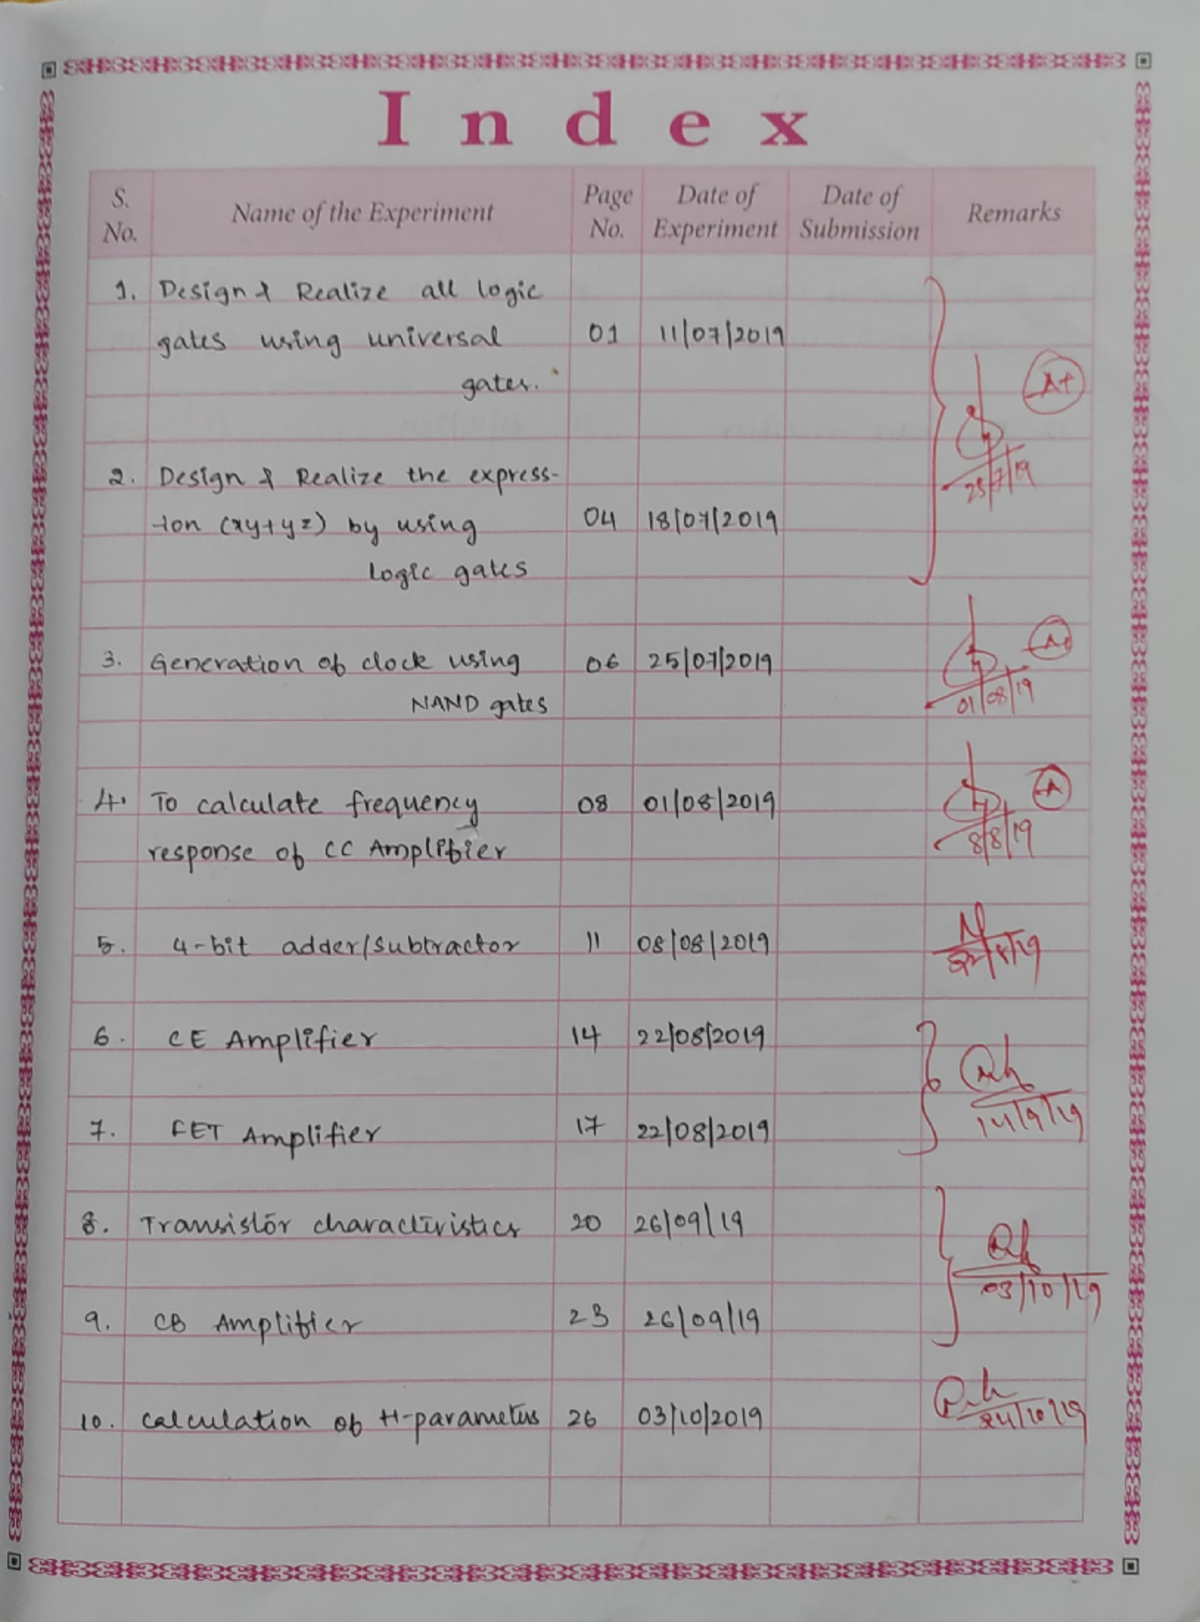 Index
S. No. Name of the Experiment Page No. Date of Experiment Date of Submission Remarks
1. Design & Realize all logic
gates using universal 01 11/07/2019
gates.
A+
25/7/19
2. Design & Realize the express-
-ion (xy+yz) by using 04 18/07/2019
logic gates
3. Generation of clock using 06 25/07/2019
NAND gates
01/08/19
4. To calculate frequency 08 01/08/2019 A
response of CC Amplifier
8/8/19
5. 4-bit adder/subtractor 11 08/08/2019
22/8/19
6. CE Amplifier 14 22/08/2019
14/9/19
7. FET Amplifier 17 22/08/2019
8. Transistor characteristics 20 26/09/19
03/10/19
9. CB Amplifier 23 26/09/19
10. Calculation of H-parameters 26 03/10/2019
24/10/19